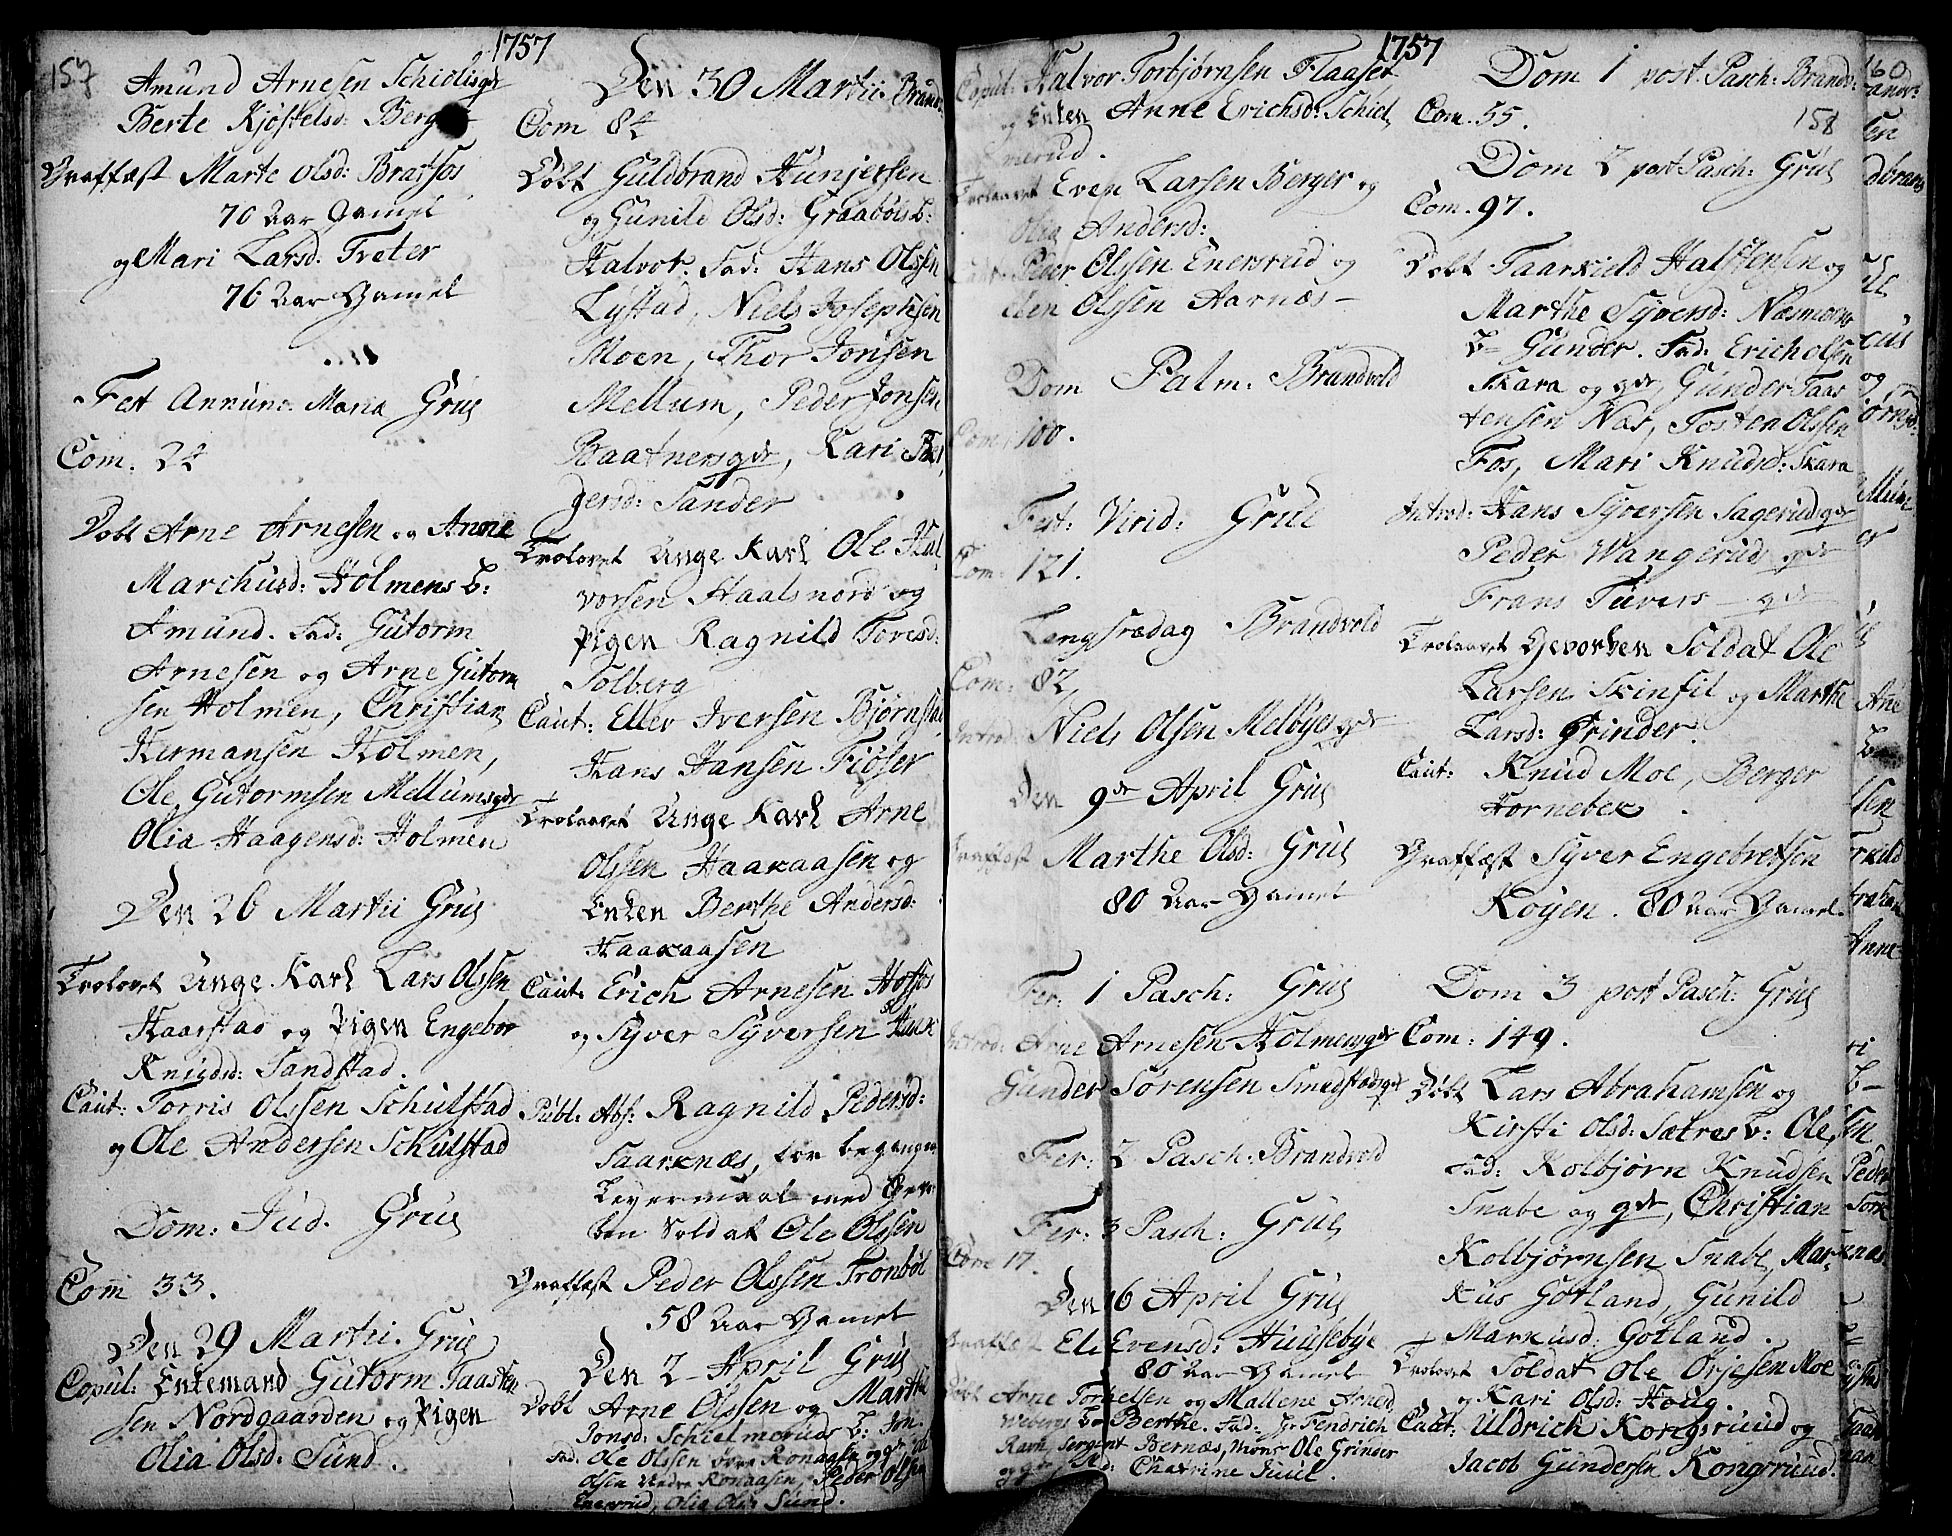 157
1757
Amund Arnesen Schielisgdr
Berte Kjøstelsd: Berger
Graffæst Marte Olsd: Bratfos
70 Aar Gamel
og Mari Larsd: Træter
76 Aar Gamel
Fet Annunc: Maria Grue
Com. 24
Døbt Arne Arnesen og Anne
Marchusd: Holmens b:
Amund. Fad: Gutorm
Arnesen og Arne Gutorm
sen Holmen, Christian
Hermansen Holmen,
Ole Gutormsen Mellumsgdr
Olia Haagensd: Holmen
Den 26 Martii Grue
Trolovet Unge Karl Lars Olssen
Haarstad og Pigen Engebor
Knudsd: Sandstad.
Caut: Torris Olssen Schulstad
og Ole Andersen Schulstad
Dom: Jud. Grue
Com 33.
Den 29 Martii. Grue
Copul: Enkemand Gutorm Taasten
sen Nordgaarden og Pigen
Olia Olsd: Sund.
Den 30 Martii Brandv:
Com 84
Døbt Guldbrand Hunjersen
og Gunild Olsd: Graabøls b:
Halvor. Fad: Hans Olssen
Lystad, Niels Josephsen
Moen, Thor Jonsen
Mellum, Peder Jonsen
Baatnersgdr, Kari Bør
gersd: Sander
Trolovet Unge Karl Ole Hal
vorsen Haalsnord og
Pigen Ragnild Toresd:
Solberg
Caut: Eller Iversen Bjørnstad
Hans Hansen Fiøser
Trolovet Unge Karl Arne
Olssen Haakaasen og
Enken Berthe Andersd:
Haakaasen
Caut: Erich Arnesen Hoffos
og Syver Syversen Huuk
Publ: Abs: Ragnild Pedersd:
Saarknæs, for begangen
Leyermaal med Gevor
ben Soldat Ole Olssen
Graffæst Peder Olssen Trønbøl
58 Aar Gamel
Den 2 April Grue
Døbt Arne Olssen og Marthe
Jonsd: Schielmeruds b: Jon.
Fad: Ole Olssen øvre Ronaasen og gdr, Ole
Olsen Nedre Ronaasen, Peder Olsen
Enersrud, Olia Olsd Sund.
1757
Copul: Halvor Torbjørnsen Flaaser
og Enken Anne Erichsd: Schiel
merud.
Trolovet Even Larsen Berger og
Olia Andersd:
Caut: Peder Olssen Enersrud og
Olssen Aarnæs
Dom Palm: Brandvold
Com: 100.
Fest: Virid: Grue
Com: 121.
Langfredag Brandvold
Com: 82,
Introd: Niels Olssen Melbyesgdr
Den 9de April Grue
Graffæst Marthe Olsd: Grue
80 Aar Gamel
Fer: 1 Pasch: Grue
Introd: Arne Arnesen Holmensgdr
Gunder Sørensen Smedstadsgdr
Fer: 2 Pasch: Brandvold
Fer: 3 Pasch: Grue
Com 17.
Den 16 April Grue
Graffæst Eli Evensd: Huusebye
80 Aar Gamel
Døbt Arne Torkelsen og Mallene Arned
Webergs b: Berthe. Fad: Jr Fendrich
Ravn, Sergent Bernæs, Mons: Ole Grinder
og gdr, Chatrine Juul.
Dom 1 post Pasch: Brandv:
Com. 55.
158
Dom 2 post Pasch: Grue
Com. 97.
Døbt Taarkield Halstensen og
Marthe Syversd: Næsmoens
b- Gunder. Fad: Erich Olsen
Skara og gdr, Gunder Taas
tensen Nor, Tosten Olssen
Fos, Mari Knudsd: Skara
Introd: Hans Syversen Sagerudsgdr
Peder Wangerud gdr
Frans Tuvers gdr
Trolovet Gevorben Soldat Ole
Larsen Skinfil og Marthe
Larsd: Grinder.
Caut: Knud Moe, Berger
Hornebek.
Graffæst Syver Engebretsen
Køyen. 80 Aar Gamel.
Dom 3 post Pasch: Grue
Com: 149.
Døbt Lars Abrahamsen og
Kirsti Olsd: Sætres b: Ole,
Fad: Kolbjørn Knudsen
Snabe og gdr, Christian
Kolbjørnsen Snabe, Mar-
kus Gotland, Gunild
Markusd: Gotland.
Trolovet Soldat Ole Ørjesen Moe
og Kari Olsd: Houg.
Caut: Uldrich Kongsruud og
Jacob Gundersen Kongsruud.
160